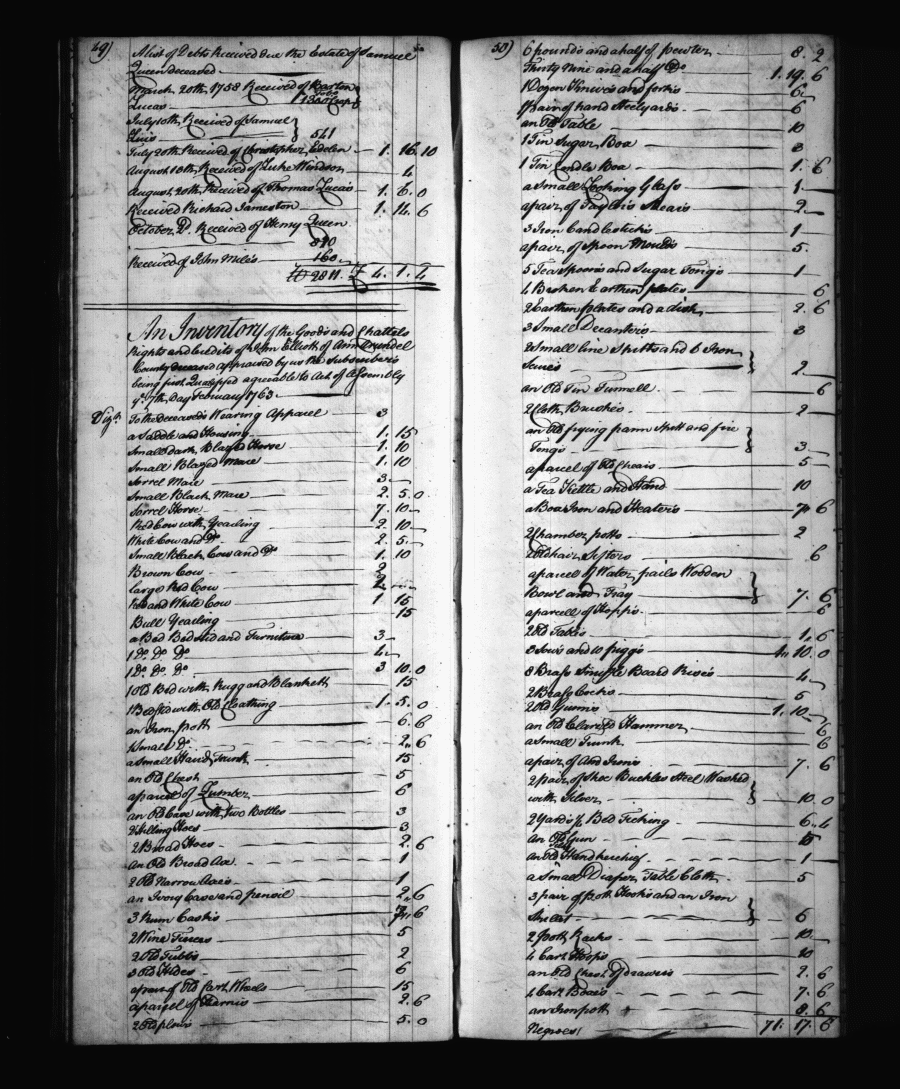 49)
A list of Debts Received due the Estate of Samuel
Queen deceased
March 20th, 1758 Received of
Lucas
July 10th, Received of Samuel
541
July 20th Received of Christopher Edelen 1. 16. 10
August 18th Received of Luke Windsor 4
August 20th Received of Thomas Lucas 1. 6. 0
Received Richard Jameston 1. 14. 6
October Do. Received of Henry Queen
890
Received of John Miles 160
2811. 4. 1. 4
An Inventory of the Goods and Chattels
Rights and Credits of John Elliott of Ann Arundel
County deceased appraised by us the Subscribers
being first Qualifyed agreable to Act of Assembly
ye. 7th, Day February 1763
Vizt.
To the Deceased's Wearing Apparel 3
a Saddle and Housing 1. 15
Small dark Blazed Horse 1. 10
Small Blazed Mare 1. 10
Sorrel Mare 3
Small Black Mare 2. 5. 0
Sorrel Horse 7. 10
Red Cow with Yearling 2. 10
White Cow and Do. 2. 5
Small Black Cow and Do. 1. 10
Brown Cow 2
Large Red Cow 2
Red and White Cow 1. 15
Bull Yearling 15
a Bed Bedsted and Furniture 3
1 Do. Do. Do. 4
1 Do. Do. Do. 3 10. 0
1 Old Bed with Rugg and Blankett 15
1 Bedsted with Old Cloathing 1. 5. 0
an Iron pott 6. 6
1 Small Do. 2. 6
a Small Hand Trunk 15
an Old Chest 5
a parcel of Lumber 6
an Old Case with two Bottles 3
2 Hilling Hoes 3
2 Broad Hoes 2. 6
An Old Broad Axe 1
2 Old Narrow Axes 1
an Ivory Case and pencil 2. 6
3 Rum Casks 7. 6
2 Wine Tierces 5
2 Old Tubbs 2
3 Old Hides 6
a pair of Old Cart Wheels 15
a parcel of 2. 6
2 Old plows 5. 0
50)
6 pounds and a half of pewter 8. 2
Thirty Nine and a half Do 1. 19. 6
1 Dozen Knives and forks 6
1 pair of hand Steelyards 6
an Old Table 10
1 Tin Sugar Box 3
1 Tin Candle Box 1. 6
a Small Looking Glass 1
a pair of Taylors Shears 2
3 Iron Candlesticks 1
a pair of Spoon Moulds 5
5 Tea Spoons and Sugar Tongs 1
4 Broken Earthen plates 6
2 Earthen plates and a dish 2. 6
3 Small Decanters 3
2 Small line Spitts and 6 Iron
2
an Old Tin Funnell 6
2 Cloth Brushes 2
an Old frying pann Spitt and fire
Tongs 3
a parcel of Old Chairs 5
a Tea Kettle and Stand 10
a Box Iron and Heaters 7. 6
2 Chamber potts 2
2 Old hair Sifters 6
a parcel of Water pails Wooden
Bowl and Tray 7. 6
a parcell of Hopps 6
2 Old Tables 1. 6
3 Sows and 10 piggs 4. 10. 0
8 Brass Board 4
2 Brass Cocks 5
2 Old Gunns 1. 10
an Old Hammer 6
a Small Trunk 6
a pair of And Irons 7. 6
2 pair of Shoe Buckles Steel Washed
with Silver 10. 0
2 Yards ½ Bed Ticking 6. 4
an Old Gun 15
an Old Silk Handkerchief 1
a Small Diaper Table Cloth 5
3 pair of Pott Hooks and an Iron
Skillet 6
2 pott Racks 10
4 Cart Hoops 10
an Old Chest of drawers 2. 6
4 Cart Boxes 7. 6
an Iron pott 8. 6
Negroes 71. 17. 6